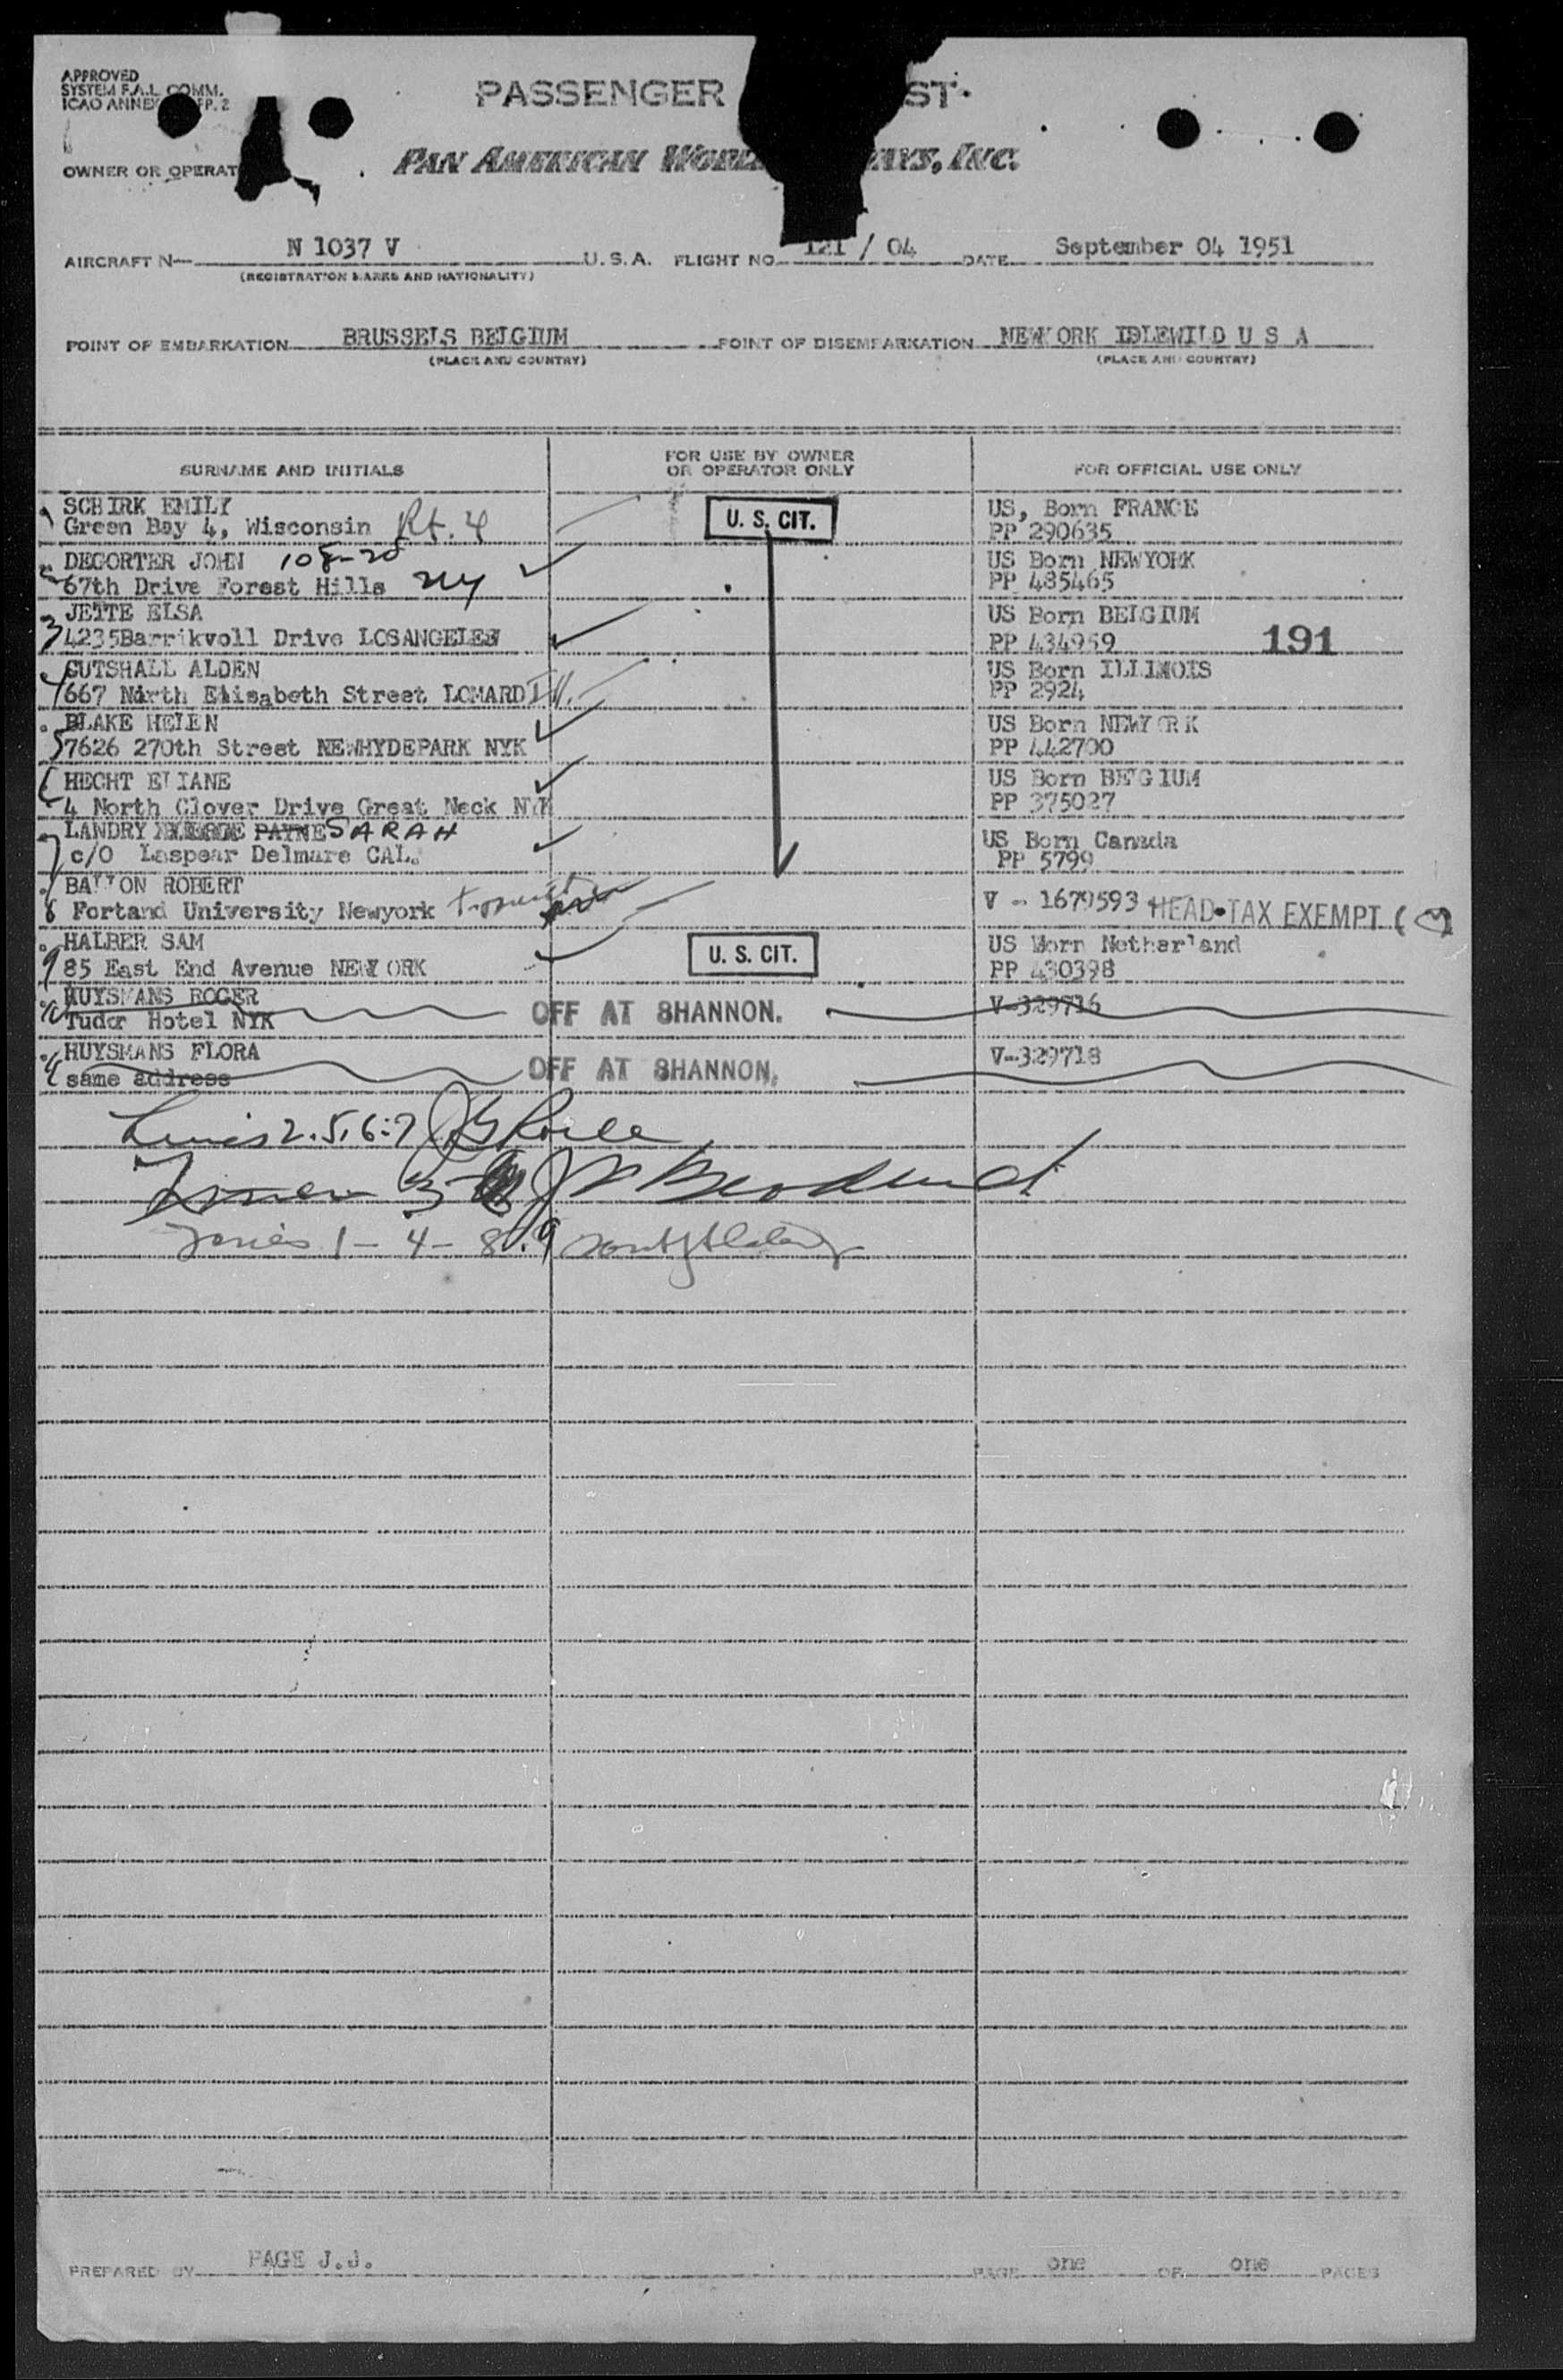 APPROVED
SYSTEM F.A.L. COMM.
ICAO ANNEX FP. 2
PASSENGER ST.
OWNER OR OPERAT
PAN AMERICAN WORL AYS, INC.
AIRCRAFT N— N 1037 V U.S.A. FLIGHT NO 121 / 04 DATE September 04 1951
(REGISTRATION MARKS AND NATIONALITY)
POINT OF EMBARKATION BRUSSELS BELGIUM POINT OF DISEMBARKATION NEWYORK IDLEWILD U S A
(PLACE AND COUNTRY) (PLACE AND COUNTRY)
SURNAME AND INITIALS FOR USE BY OWNER OR OPERATOR ONLY FOR OFFICIAL USE ONLY
1 SCHIRK EMILY U. S. CIT. US, Born FRANCE
Green Bay 4, Wisconsin Rt. 4 PP 290635
2 DECORTER JOHN 108-20 US Born NEWYORK
67th Drive Forest Hills NY PP 485465
3 JETTE ELSA US Born BELGIUM
4235 Drive LOSANGELES PP 434959 191
4 GUTSHALL ALDEN US Born ILLINOIS
667 North Elisabeth Street LOMARD Ill. PP 2924
5 BLAKE HELEN US Born NEWYORK
7626 270th Street NEWHYDEPARK NYK PP 442700
6 HECHT ELIANE US Born BELGIUM
4 North Clover Drive Great Neck NYK PP 375027
7 LANDRY PAYNE SARAH US Born Canada
c/O Laspear Delmare CAL. PP 5799
8 BATTON ROBERT V - 1679593 HEAD-TAX EXEMPT (
Fortand University Newyork
9 HALBER SAM U. S. CIT. US Worn Netherland
85 East End Avenue NEWYORK PP 430398
10 HUYSMANS ROGER OFF AT SHANNON. V-329716
Tudor Hotel NYK
HUYSMANS FLORA OFF AT SHANNON. V-329718
same address
2.5.6.7
3
1 - 4 - 8.9
PREPARED BY PAGE J.J. PAGE one OF one PAGES